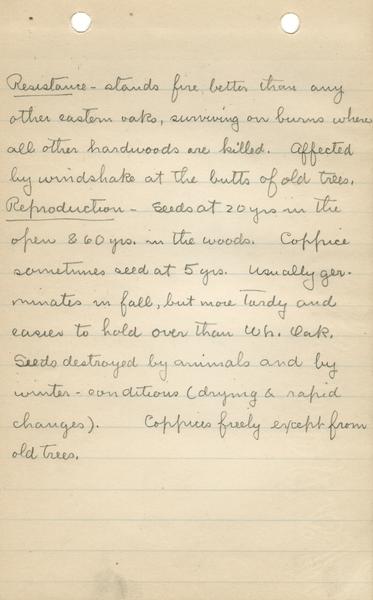 Resistance - stands fire better than any
other eastern oaks, surviving on burns where
all other hardwoods are killed. Affected
by windshake at the butts of old trees.
Reproduction - Seeds at 20 yrs in the
open & 60 yrs. in the woods. Coppice
sometimes seed at 5 yrs. Usually ger-
minates in fall, but more Tardy and
easier to hold over than Wh. Oak.
Seeds destroyed by animals and by
winter-conditions (drying & rapid
changes). Coppices freely except from
old trees.